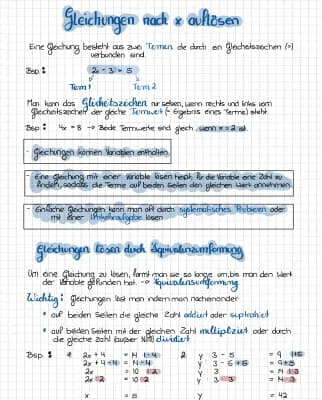 Gleichungen nach x auflösen
Eine Gleichung besteht aus zwei Termen die durch ein Gleichheitszeichen (=)
verbunden sind.
Bsp.: 2x - 3 = 5
Term 1 Term 2
Man kann das Gleichheitszeichen nur setzen, wenn rechts und links vom
Gleichheitszeichen der gleiche Termwert (= Ergebnis eines Terms) steht.
Bsp.: 4x = 8 → Beide Termwerte sind gleich, wenn x = 2 ist.
- Gleichungen können Variablen enthalten
- Eine Gleichung mit einer Variable lösen heißt, für die Variable eine Zahl zu
finden, sodass die Terme auf beiden Seiten den gleichen Wert annehmen.
- Einfache Gleichungen kann man oft durch systematisches Probieren oder
mit einer Umkehraufgabe lösen
Gleichungen lösen durch Äquivalenzumformung
Um eine Gleichung zu lösen, formt man sie so lange um, bis man den Wert
der Variable gefunden hat. → Äquivalenzumformung
Wichtig: Gleichungen löst man indem man nacheinander
• auf beiden Seiten die gleiche Zahl addiert oder subtrahiert
• auf beiden Seiten mit der gleichen Zahl multipliziert oder durch
die gleiche Zahl (außer Null) dividiert
Bsp.:
2x + 4 = 14 |-4
2x + 4 - 4 = 14 - 4
2x = 10 |:2
2x : 2 = 10 : 2
x = 5
y : 3 - 5 = 9 |+5
y : 3 - 5 + 5 = 9 + 5
y : 3 = 14 |·3
y = 42